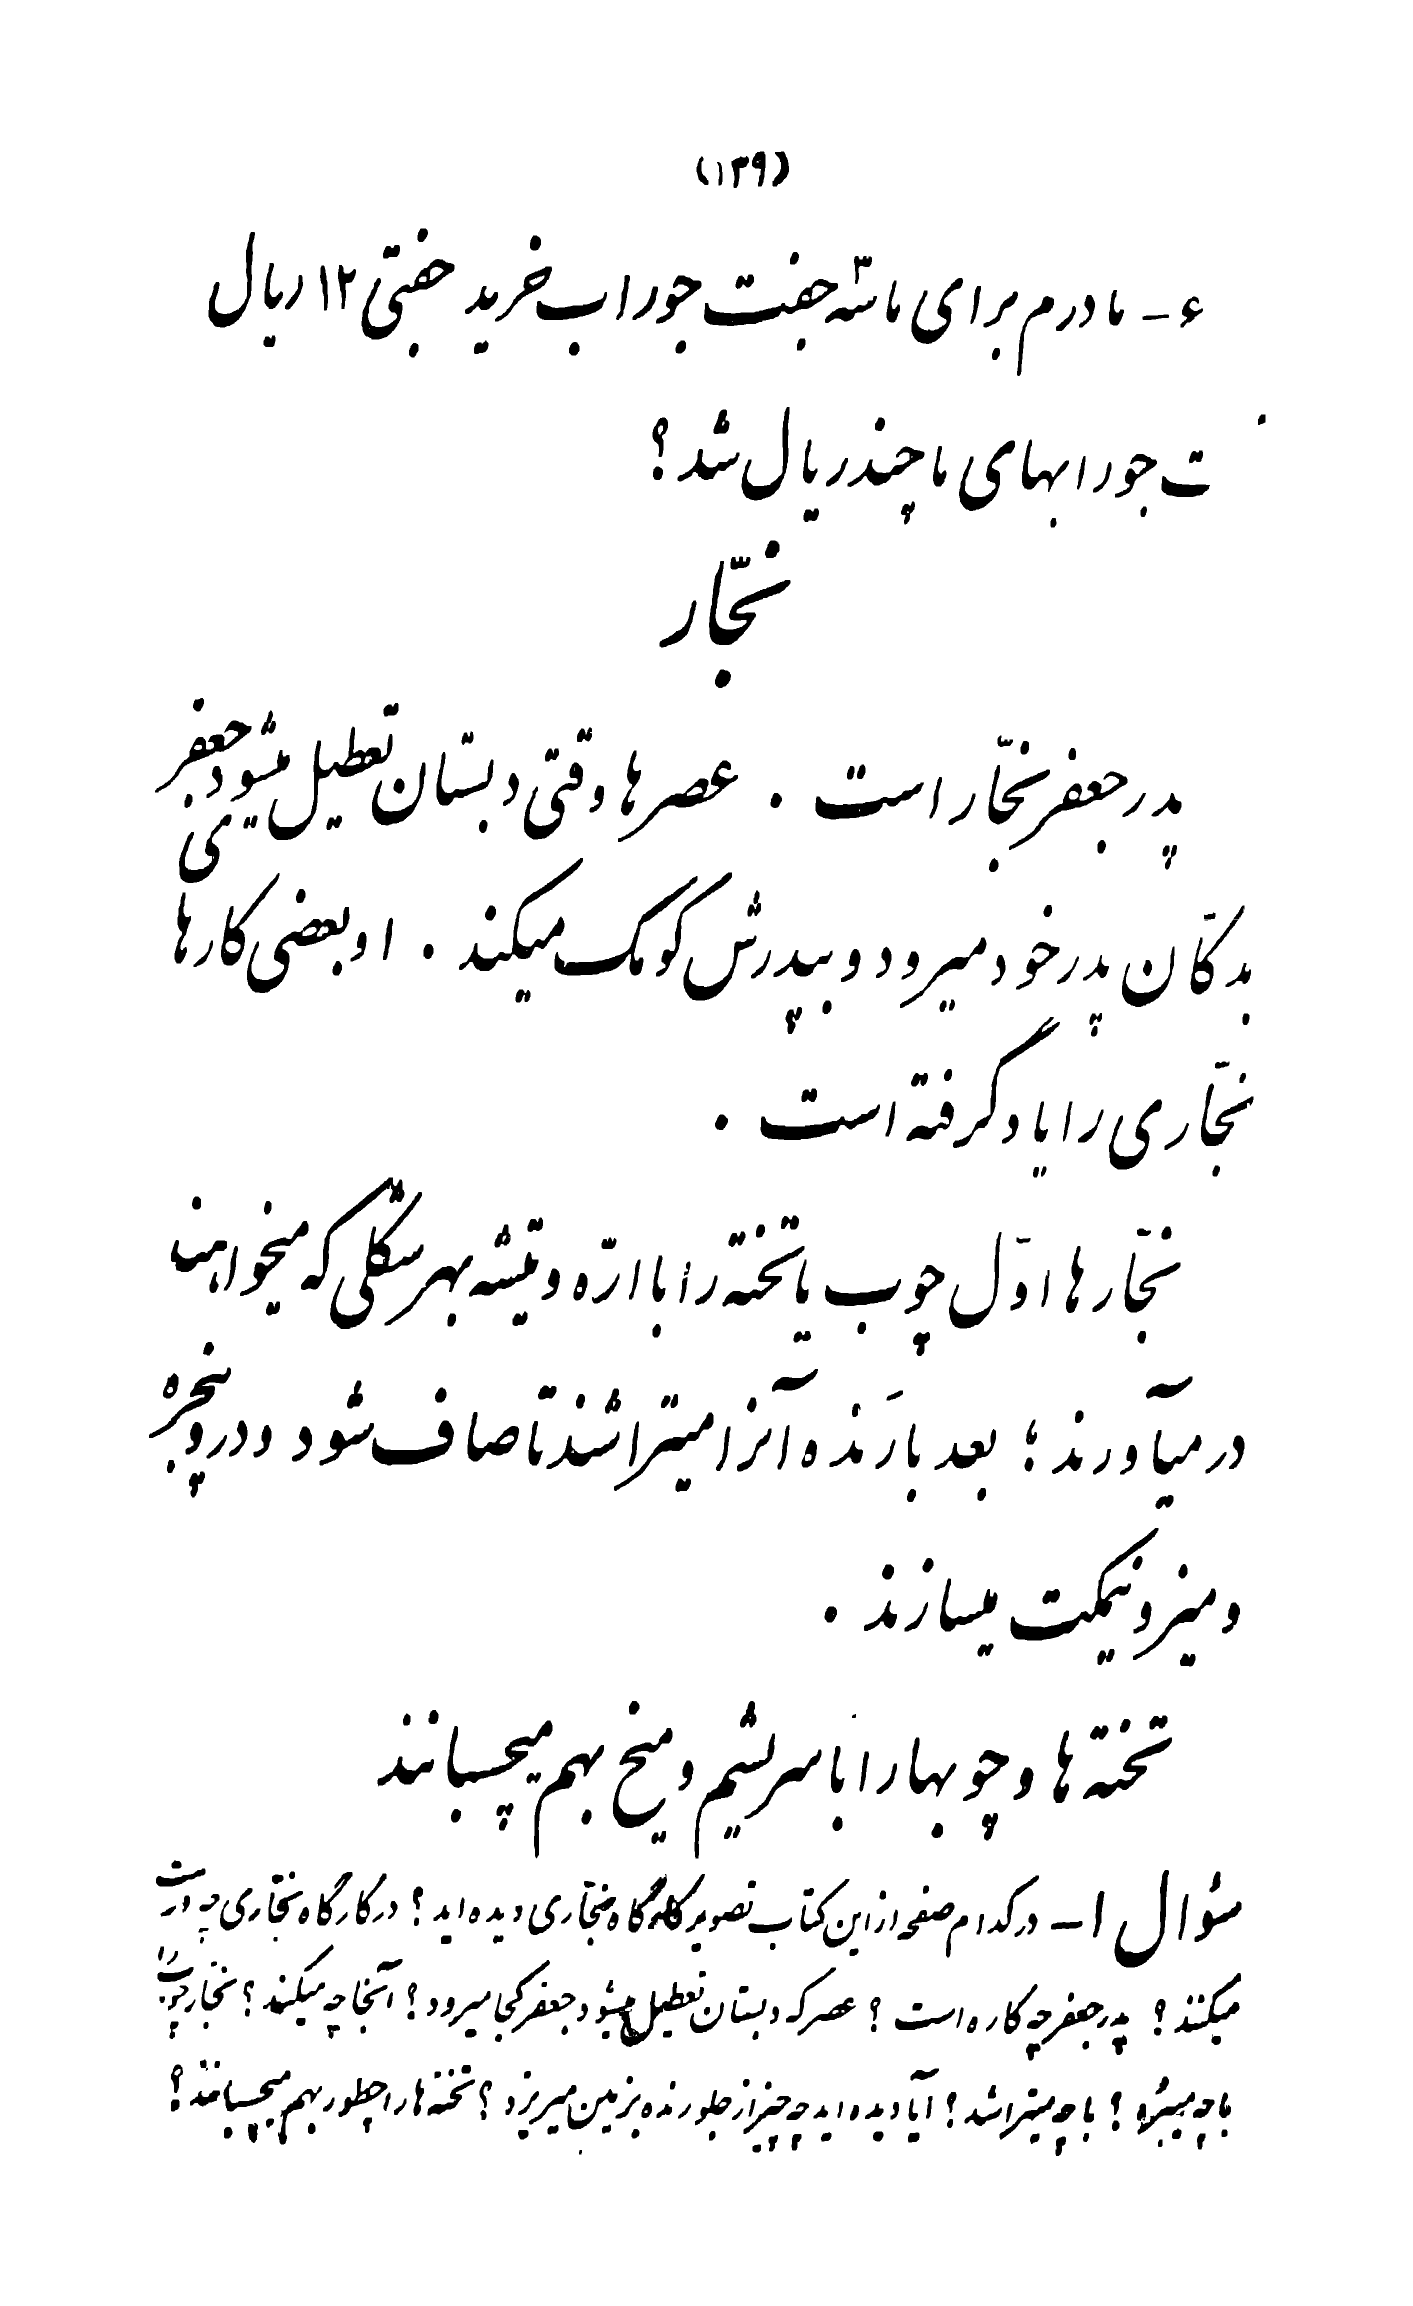 (۱۳۹)
۶- مادرم برای ما سه جفت جوراب خرید جفتی ۱۲ ریال
ت جورابهای ما چند ریال شد؟
نجّار
پدر جعفر نجّار است . عصرها وقتی دبستان تعطیل میشود جعفر
بدکّان پدر خود میرود و بپدرش کومک میکند . او بعضی کارهای
نجّاری را یاد گرفته است .
نجّارها اوّل چوب یا تخته را با ارّه و تیشه بهر شکلی که میخواهند
درمیآورند ؛ بعد با رَنده آنرا میتراشند تا صاف شود و در و پنجره
و میز و نیمکت میسازند .
تخته‌ها و چوبها را با سریشم و میخ بهم میچسبانند
سؤال ۱- در کدام صفحه از این کتاب تصویر کارگاه نجّاری دیده‌اید ؟ در کارگاه نجّاری چه درست
میکنند ؟ پدر جعفر چه کاره است ؟ عصر که دبستان تعطیل میشود جعفر کجا میرود ؟ آنجا چه میکند ؟ نجّار چوب را
با چه میبرد ؟ با چه میتراشد ؟ آیا دیده‌اید چه چیز از جلو رنده بزمین میریزد ؟ تخته‌ها را چطور بهم میچسبانند ؟